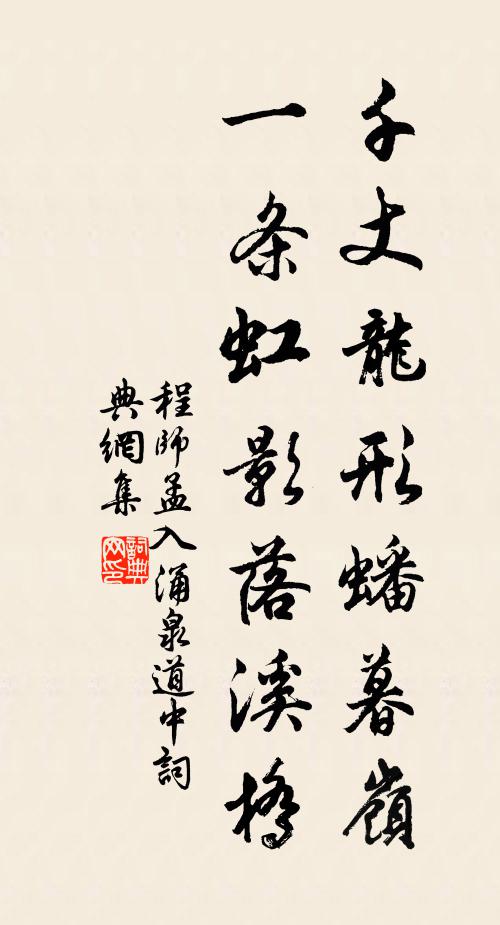 千丈龍形蟠暮嶺
一条虹影落溪橋
程師孟入涌泉道中詞
典網集
詞典
网印